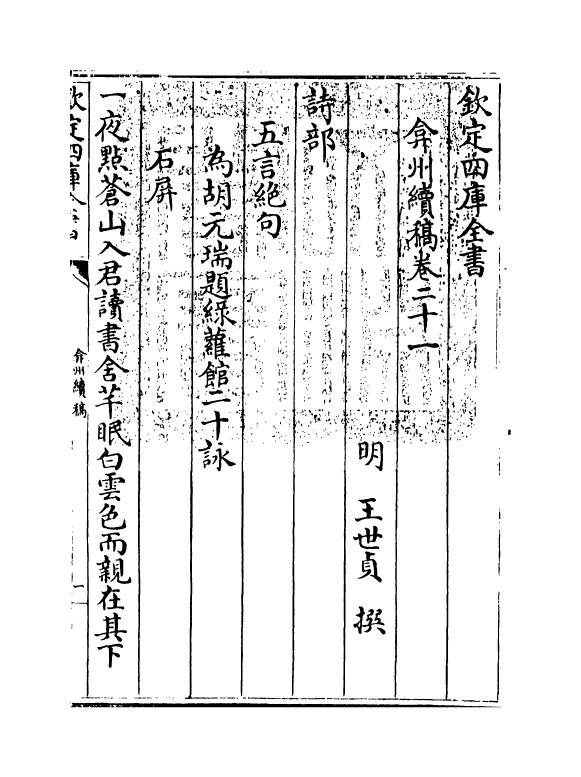 欽定四庫全書
弇州續稿卷二十一
明 王世貞 撰
詩部
五言絕句
為胡元瑞題綠蘿館二十詠
石屏
一夜點蒼山入君讀書舍芊眠白雲色而親在其下
欽定四庫全書
弇州續稿
一